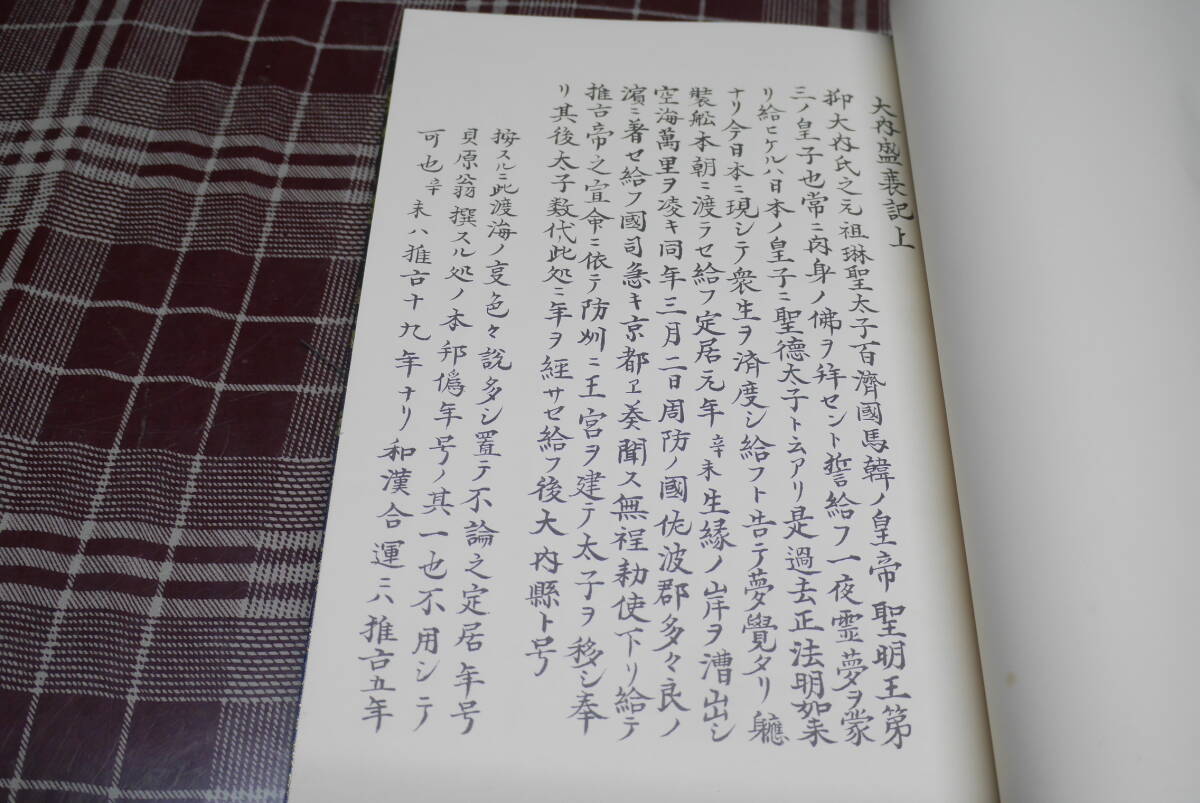 大内盛衰記上
抑大内氏之元祖琳聖太子百濟國馬韓ノ皇帝聖明王第
三ノ皇子也常ニ肉身ノ佛ヲ拜セント誓給フ一夜霊夢ヲ蒙
リ給ヒケルハ日本ノ皇子ニ聖德太子ト云アリ是過去正法明如来
ナリ今日本ニ現シテ衆生ヲ済度シ給フト告テ夢覺タリ軈
裝舩本朝ニ渡ラセ給フ定居元年辛未生縁ノ岸ヲ漕出シ
空海萬里ヲ凌キ同年三月二日周防ノ國佐波郡多々良ノ
濱ニ著セ給フ國司急キ京都ヱ奏聞ス無程勅使下リ給テ
推古帝之宣命ニ依テ防刕ニ王宮ヲ建テ太子ヲ移シ奉
リ其後太子数代此処ニ年ヲ經サセ給フ後大内縣ト号
按スルニ此渡海ノ叓色々說多シ置テ不論之定居年号
貝原翁撰スル処ノ本邦僞年号ノ其一也不用シテ
可也辛未ハ推古十九年ナリ和漢合運ニハ推古五年